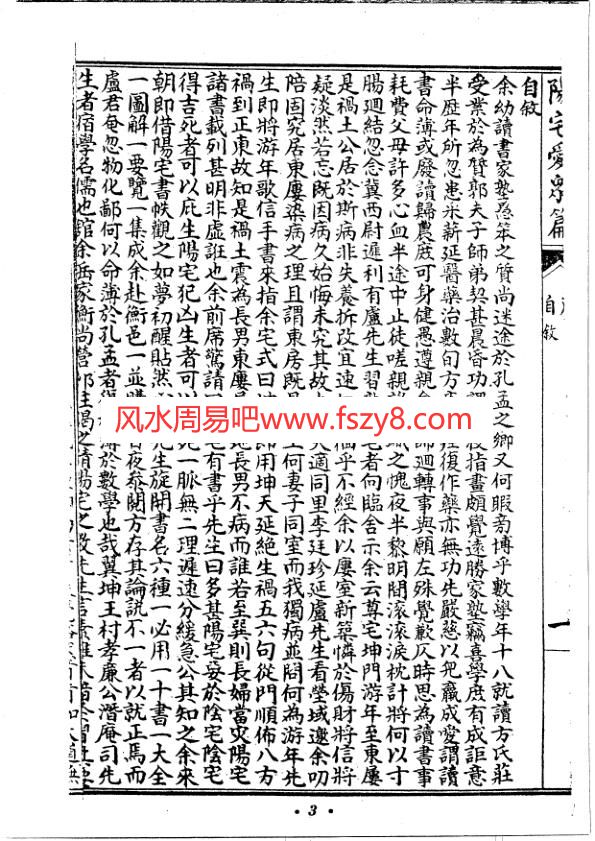 陽宅愛眾篇
自敘
一
自敘
余幼讀書家塾愚笨之質尚迷途於孔孟之鄉又何暇旁博乎數學年十八就讀方氏莊
受業於為贊郭夫子師弟契甚晨昏功課指畫頗覺遠勝家塾竊喜學庶有成詎意
半歷年所忽患米薪延醫藥治數旬方復作藥亦無功先嚴慈以兒羸成愛謂讀
書命薄或廢讀歸農庶可身健愚遵親命師迴轉事與願左殊覺歉仄時思為讀書事
耗費父母許多心血半途中止徒嗟親之愧夜半黎明間滾滾淚枕計將何以寸
腸迴結忽念冀西尉遲利有盧先生習宅者向臨舍示余云尊宅坤門游年至東廈
是禍土公居於斯病非失養拆改宜速乎不經余以廈室新築憐於傷財將信將
疑淡然若忘既因病久始悔未究其故適同里李廷珍延盧先生看塋域邀余叨
陪固究居東廈染病之理且謂東房既何妻子同室而我獨病並問何為游年先
生即將游年歌信手書來指余宅式曰即用坤天延絕生禍五六句從門順佈八方
禍到正東故知是禍土震為長男東廈長男不病而誰若至巽則長婦當灾陽宅
諸書載列甚明非虛誑也余前席驚請宅有書乎先生曰多甚陽宅妥於陰宅陰宅
得吉死者可以庇生陽宅犯凶生者可以一脈無二理遲速分緩急公其知之余來
朝即借陽宅書帙觀之如夢初醒貼然先生旋開書名六種一必用一十書一大全
一圖解一要覽一集成余赴衡邑一並購夜叅閱方存其論說不一者以就正焉而
盧君奄忽物化鄙何以命薄於孔孟者得於數學也哉冀坤王村孝廉公潛庵司先
生者宿學名儒也館余岳家衡尚營
風水周易吧
www.fszy8.com
• 3 •